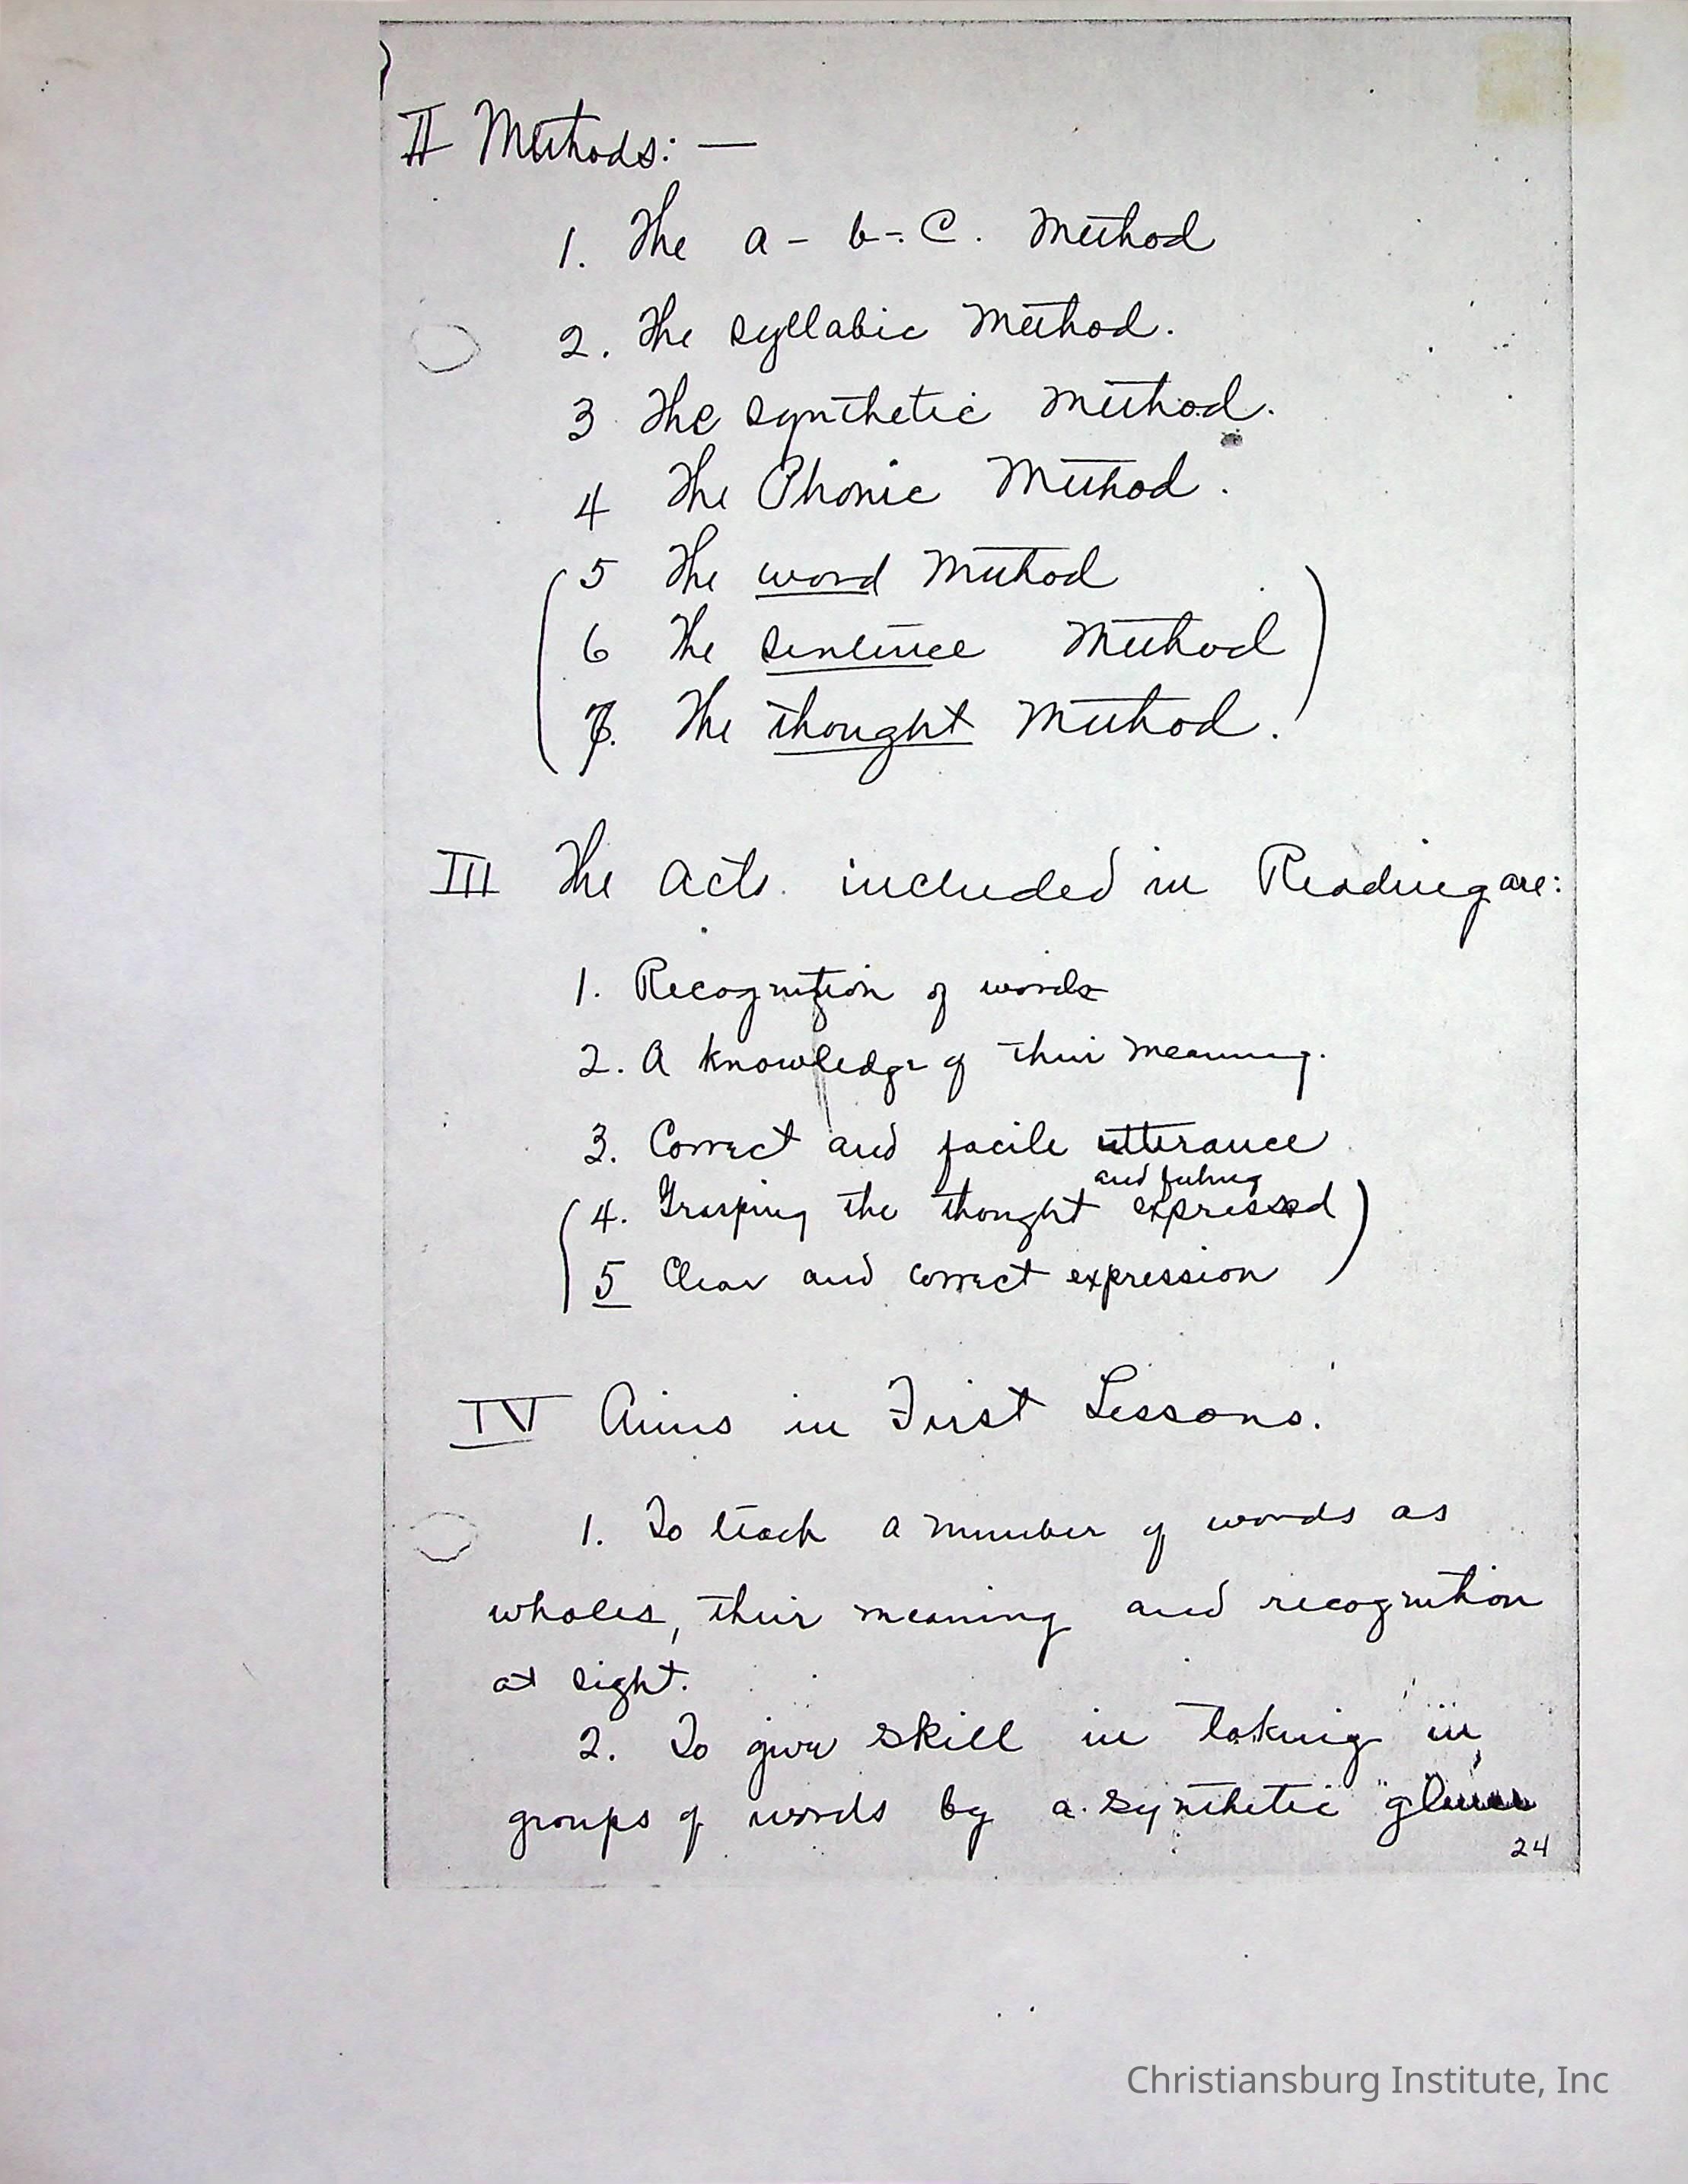 II Methods: —
1. The a - b-. C. Method
2. The syllabic Method.
3 The synthetic Method.
4 The Phonic Method.
( 5 The word Method
6 The sentence Method )
7. The thought Method.
III The acts included in Reading are:
1. Recognition of words
2. A knowledge of their meaning.
3. Correct and facile utterance
and feeling
( 4. Grasping the thought expressed )
5 Clear and correct expression
IV Aims in First Lessons.
1. To teach a number of words as
wholes, their meaning and recognition
at sight.
2. To give skill in taking in
groups of words by a synthetic
24
Christiansburg Institute, Inc